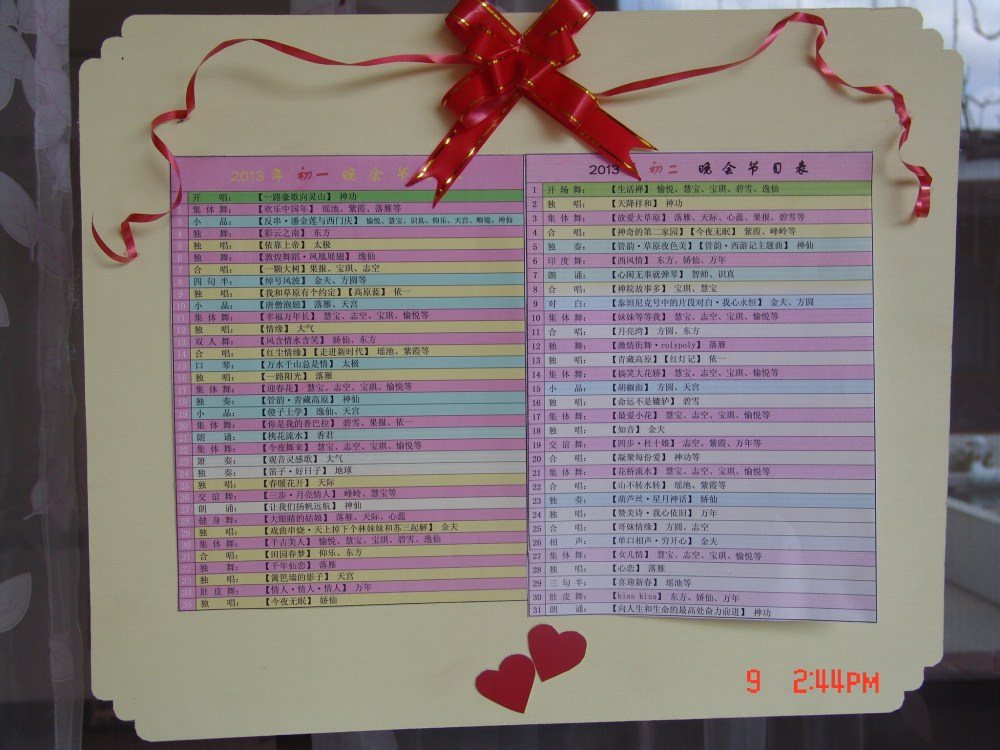 2013 年 初一 晚会节
开 唱： 【一路豪歌向灵山】 神功
集体舞： 【欢乐中国年】 瑶池、紫霞、落雁等
小 品： 【反串·潘金莲与西门庆】 愉悦、慧宝、识真、仰乐、天宫、顺境、神仙
独 舞： 【彩云之南】 东方
独 唱： 【依靠上帝】 太极
独 舞： 【敦煌舞蹈·凤凰展翅】 逸仙
7 合 唱： 【一颗大树】 果报、宝琪、志空
8 四句半： 【绰号风波】 金夫、方圆等
9 独 唱： 【我和草原有个约定】【高原蓝】 依一
10 小 品： 【唐僧抱妞】 落雁、天宫
11 集体舞： 【幸福万年长】 慧宝、志空、宝琪、愉悦等
12 独 唱： 【情缘】 大气
13 双人舞： 【风含情水含笑】 娇仙、东方
14 合 唱： 【红尘情缘】【走进新时代】 瑶池、紫霞等
15 口 琴： 【万水千山总是情】 太极
16 独 唱： 【一路阳光】 落雁
17 集体舞： 【迎春花】 慧宝、志空、宝琪、愉悦等
18 独 奏： 【管韵·青藏高原】 神仙
19 小 品： 【傻子上学】 逸仙、天宫
20 集体舞： 【你是我的香巴拉】 碧雪、果报、依一
21 朗 诵： 【桃花流水】 香君
22 集体舞： 【今夜舞来】 慧宝、志空、宝琪、愉悦等
23 箫 奏： 【观音灵感歌】 大气
24 独 奏： 【笛子·好日子】 地球
25 独 唱： 【春暖花开】 天际
26 交谊舞： 【三步·月亮情人】 峰岭、慧宝等
27 朗 诵： 【让我们扬帆远航】 神仙
28 健身舞： 【大眼睛的姑娘】 落雁、天际、心蕊
29 独 唱： 【戏曲串烧·天上掉下个林妹妹和苏三起解】 金夫
30 集体舞： 【千古美人】 愉悦、慧宝、宝琪、碧雪、逸仙
31 合 唱： 【田园春梦】 仰乐、东方
32 独 舞： 【千年仙恋】 落雁
33 独 唱： 【篱笆墙的影子】 天宫
34 肚皮舞： 【情人·情人·情人】 万年
35 独 唱： 【今夜无眠】 娇仙
2013 年 初二 晚会节目表
1 开场舞： 【生活禅】 愉悦、慧宝、宝琪、碧雪、逸仙
2 独 唱： 【天降祥和】 神功
3 集体舞： 【放爱大草原】 落雁、天际、心蕊、果报、碧雪等
4 合 唱： 【神奇的第二家园】【今夜无眠】 紫霞、峰岭等
5 独 奏： 【管韵·草原夜色美】【管韵·西游记主题曲】 神仙
6 印度舞： 【西风情】 东方、娇仙、万年
7 朗 诵： 【心闲无事就弹琴】 智师、识真
8 合 唱： 【禅院故事多】 宝琪、慧宝
9 对 白： 【泰坦尼克号中的片段对白·我心永恒】 金夫、方圆
10 集体舞： 【妹妹等等我】 慧宝、志空、宝琪、愉悦等
11 合 唱： 【月亮湾】 方圆、东方
12 独 舞： 【激情街舞·rolypoly】 落雁
13 独 唱： 【青藏高原】【红灯记】 依一
14 集体舞： 【搞笑大花轿】 慧宝、志空、宝琪、愉悦等
15 小 品： 【胡椒面】 方圆、天宫
16 独 唱： 【命运不是辘轳】 碧雪
17 集体舞： 【最爱小花】 慧宝、志空、宝琪、愉悦等
18 独 唱： 【知音】 金夫
19 交谊舞： 【四步·杜十娘】 志空、紫霞、万年等
20 合 唱： 【凝聚每份爱】 神功等
21 集体舞： 【花桥流水】 慧宝、志空、宝琪、愉悦等
22 合 唱： 【山不转水转】 瑶池、紫霞等
23 独 奏： 【葫芦丝·星月神话】 娇仙
24 独 唱： 【赞美诗·我心依旧】 万年
25 合 唱： 【哥妹情缘】 方圆、志空
26 相 声： 【单口相声·穷开心】 金夫
27 集体舞： 【女儿情】 慧宝、志空、宝琪、愉悦等
28 独 唱： 【心恋】 落雁
29 三句半： 【喜迎新春】 瑶池等
30 肚皮舞： 【kiss kiss】 东方、娇仙、万年
31 朗 诵： 【向人生和生命的最高处奋力前进】 神功
9 2:44PM